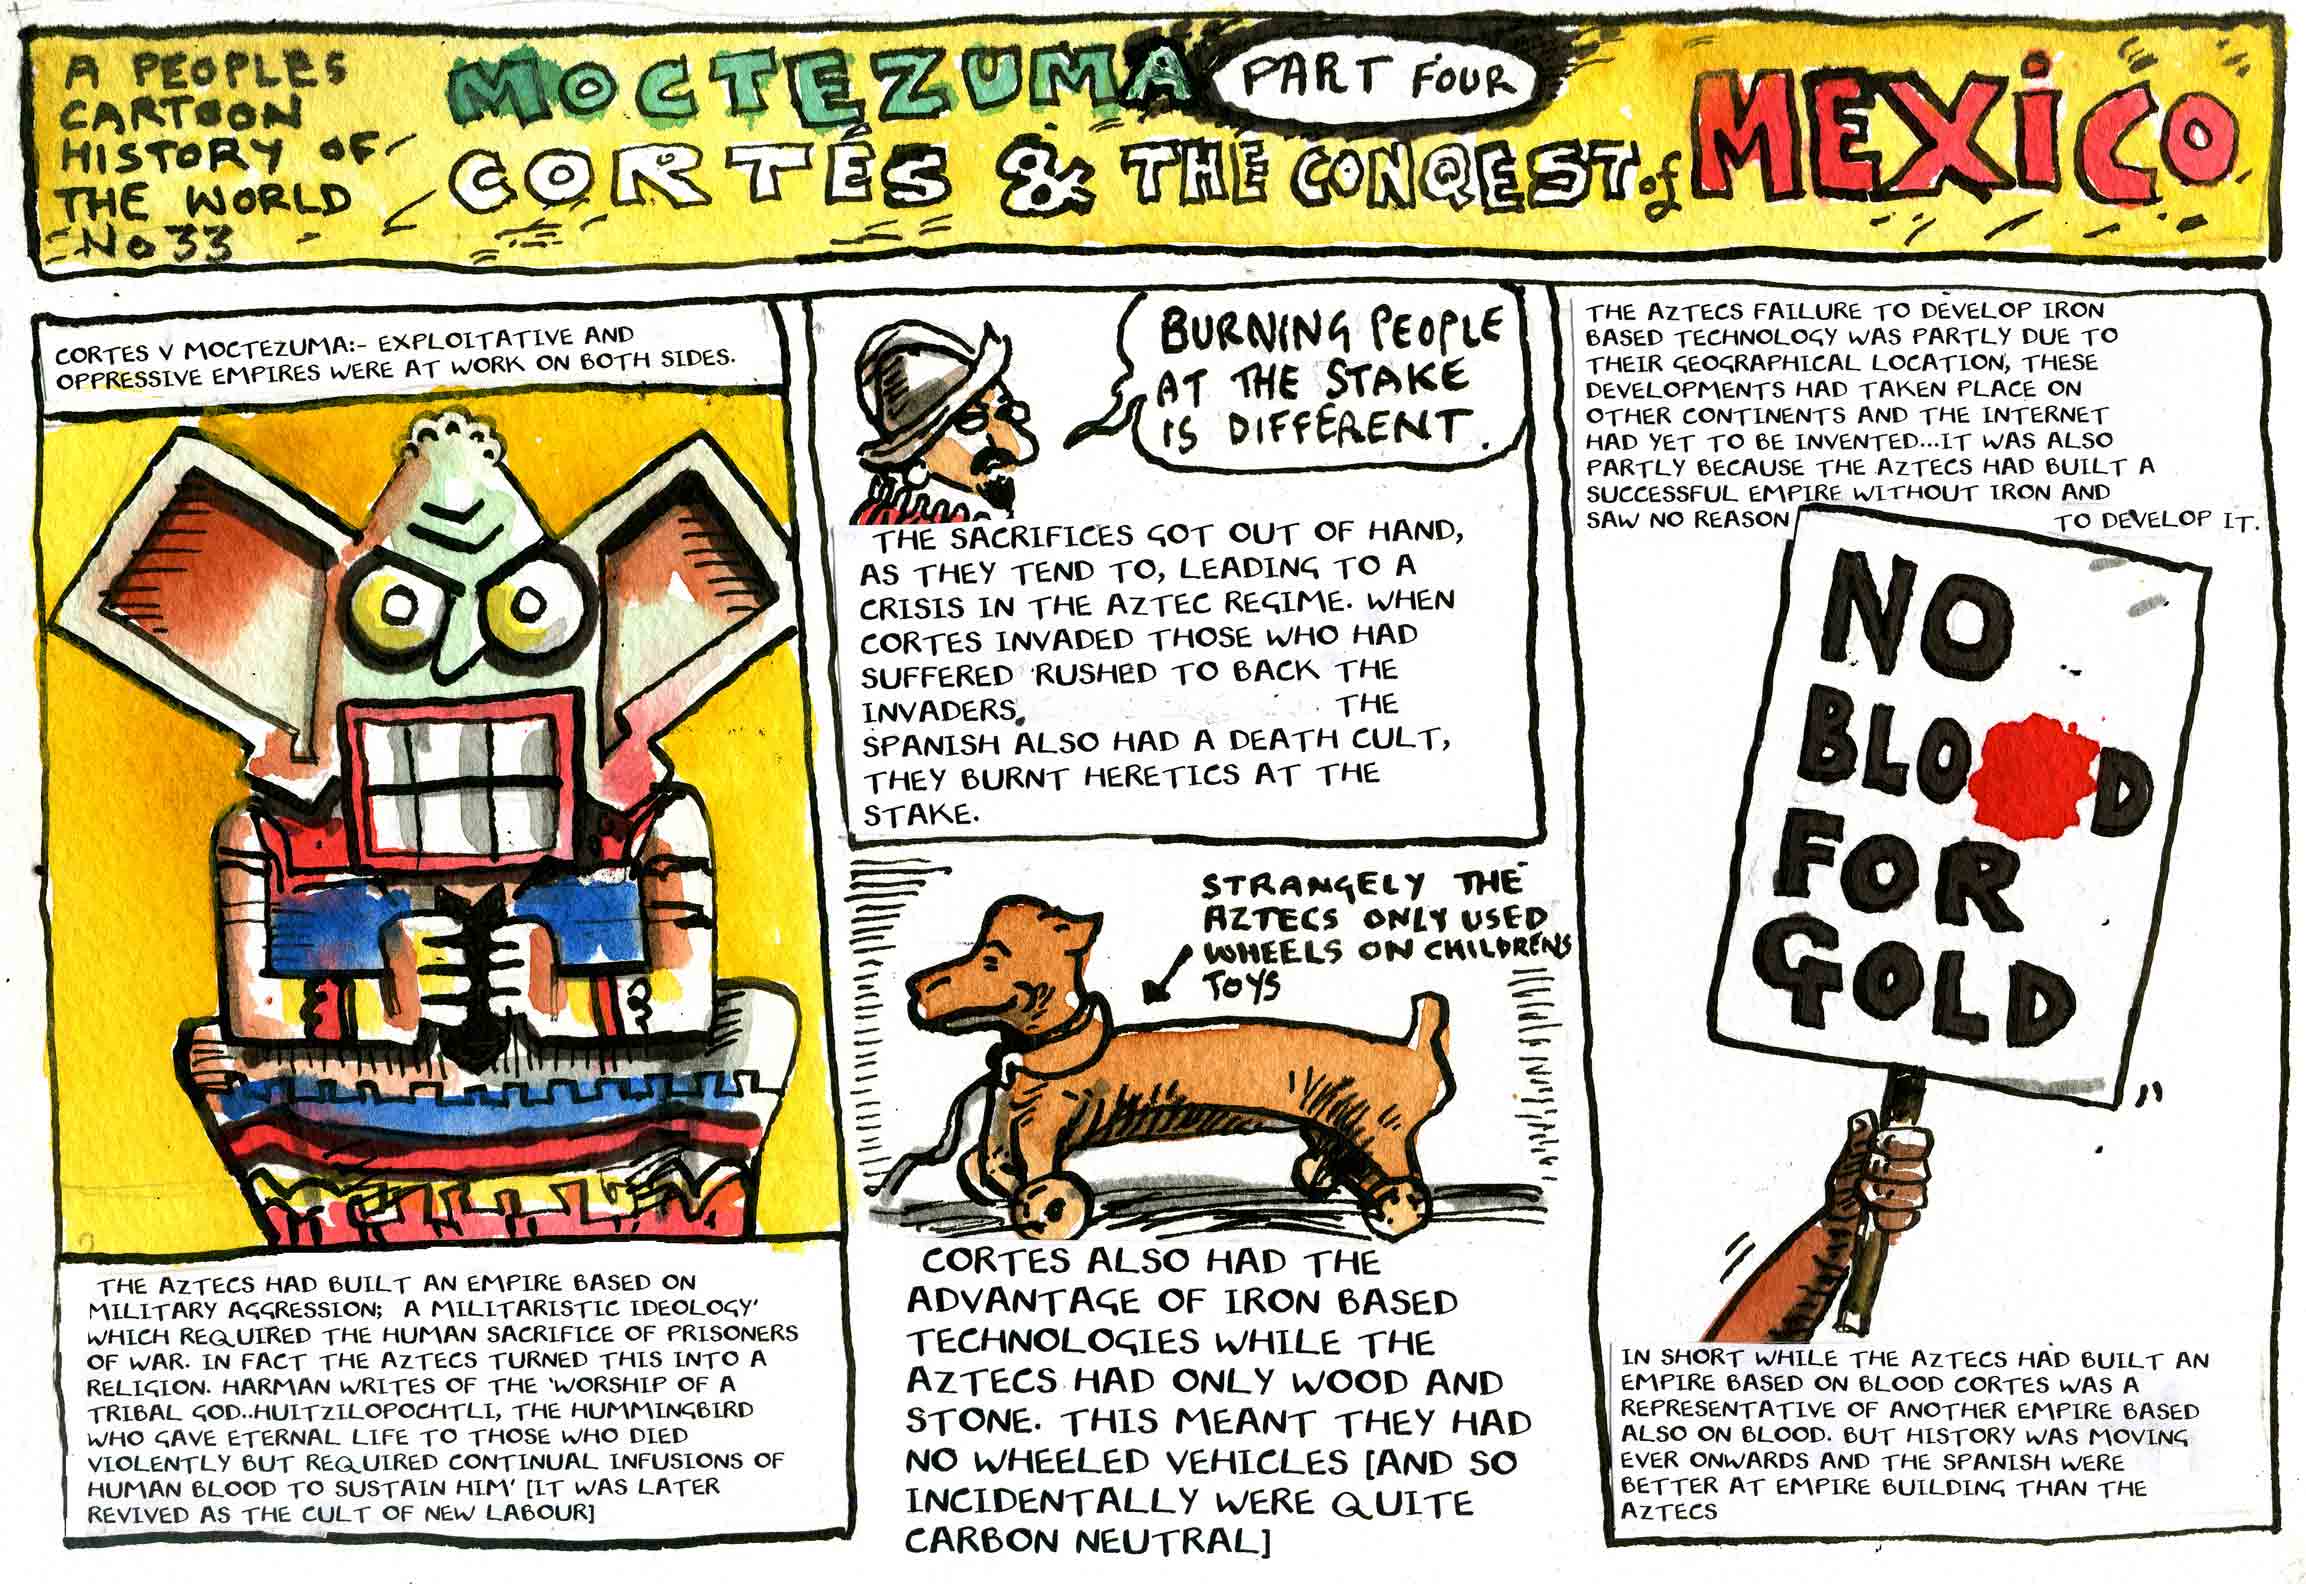 A PEOPLES
CARTOON
HISTORY OF
THE WORLD
No 33
MOCTEZUMA
PART FOUR
CORTÉS & THE CONQEST of MEXICO
CORTES V MOCTEZUMA:- EXPLOITATIVE AND
OPPRESSIVE EMPIRES WERE AT WORK ON BOTH SIDES.
THE AZTECS HAD BUILT AN EMPIRE BASED ON
MILITARY AGGRESSION; A MILITARISTIC IDEOLOGY'
WHICH REQUIRED THE HUMAN SACRIFICE OF PRISONERS
OF WAR. IN FACT THE AZTECS TURNED THIS INTO A
RELIGION. HARMAN WRITES OF THE 'WORSHIP OF A
TRIBAL GOD..HUITZILOPOCHTLI, THE HUMMINGBIRD
WHO GAVE ETERNAL LIFE TO THOSE WHO DIED
VIOLENTLY BUT REQUIRED CONTINUAL INFUSIONS OF
HUMAN BLOOD TO SUSTAIN HIM' [IT WAS LATER
REVIVED AS THE CULT OF NEW LABOUR]
BURNING PEOPLE
AT THE STAKE
IS DIFFERENT.
THE SACRIFICES GOT OUT OF HAND,
AS THEY TEND TO, LEADING TO A
CRISIS IN THE AZTEC REGIME. WHEN
CORTES INVADED THOSE WHO HAD
SUFFERED RUSHED TO BACK THE
INVADERS. THE
SPANISH ALSO HAD A DEATH CULT,
THEY BURNT HERETICS AT THE
STAKE.
STRANGELY THE
AZTECS ONLY USED
WHEELS ON CHILDRENS
TOYS
CORTES ALSO HAD THE
ADVANTAGE OF IRON BASED
TECHNOLOGIES WHILE THE
AZTECS HAD ONLY WOOD AND
STONE. THIS MEANT THEY HAD
NO WHEELED VEHICLES [AND SO
INCIDENTALLY WERE QUITE
CARBON NEUTRAL]
THE AZTECS FAILURE TO DEVELOP IRON
BASED TECHNOLOGY WAS PARTLY DUE TO
THEIR GEOGRAPHICAL LOCATION, THESE
DEVELOPMENTS HAD TAKEN PLACE ON
OTHER CONTINENTS AND THE INTERNET
HAD YET TO BE INVENTED...IT WAS ALSO
PARTLY BECAUSE THE AZTECS HAD BUILT A
SUCCESSFUL EMPIRE WITHOUT IRON AND
SAW NO REASON TO DEVELOP IT.
NO
BLOOD
FOR
GOLD
IN SHORT WHILE THE AZTECS HAD BUILT AN
EMPIRE BASED ON BLOOD CORTES WAS A
REPRESENTATIVE OF ANOTHER EMPIRE BASED
ALSO ON BLOOD. BUT HISTORY WAS MOVING
EVER ONWARDS AND THE SPANISH WERE
BETTER AT EMPIRE BUILDING THAN THE
AZTECS